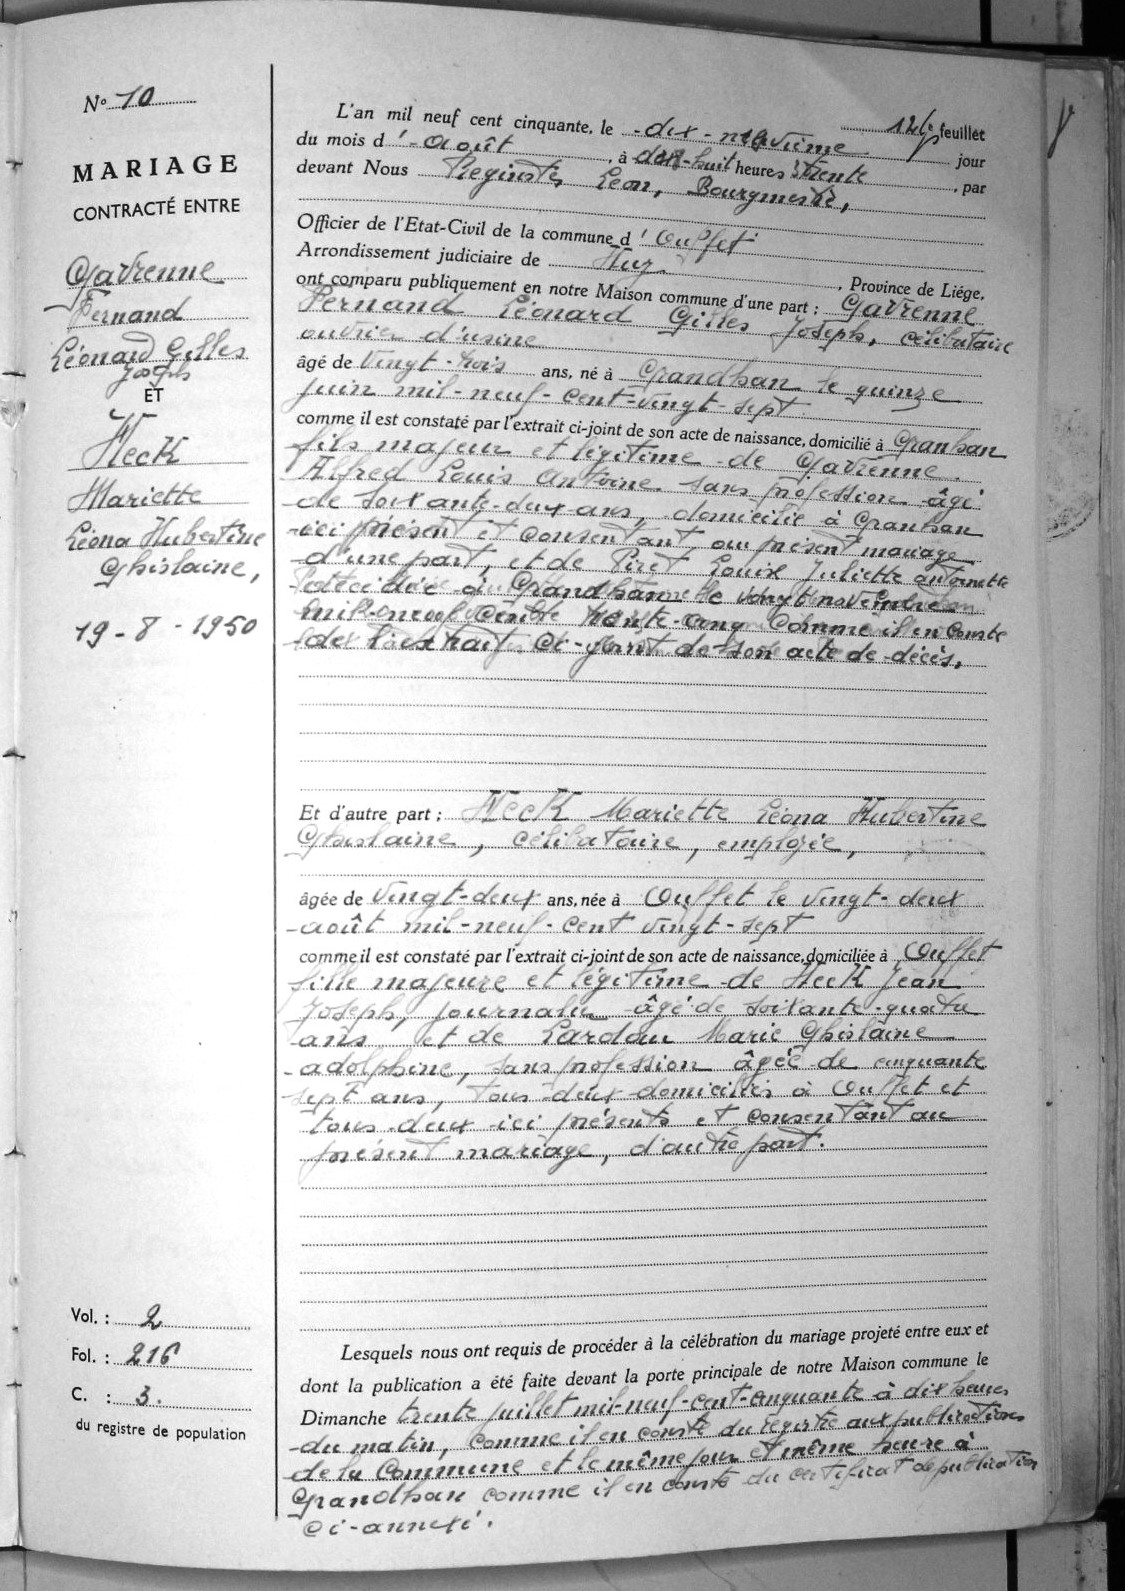 N° 10
MARIAGE
CONTRACTÉ ENTRE
Gavrenne
Fernand
Léonard Gilles
Joseph
ET
Heck
Mariette
Léona Hubertine
Ghislaine,
19-8-1950
Vol. : 2
Fol. : 216
C. : 3.
du registre de population
feuillet
L'an mil neuf cent cinquante, le dix-neuvième jour
du mois d'août, à dix-huit heures trente, par
devant Nous Léon, Bourgmestre,
Officier de l'Etat-Civil de la commune d'Ouffet
Arrondissement judiciaire de Huy, Province de Liége,
ont comparu publiquement en notre Maison commune d'une part : Gavrenne
Fernand Léonard Gilles Joseph, célibataire
ouvrier d'usine
âgé de vingt-trois ans, né à Grandhan le quinze
juin mil-neuf-cent-vingt-sept
comme il est constaté par l'extrait ci-joint de son acte de naissance, domicilié à Granhan
fils majeur et légitime de Gavrenne
Alfred Louis Antoine sans profession âgé
de soixante-deux ans, domicilié à Granhan
ici présent et consentant au présent mariage
d'une part, et de Piret Louise Juliette Antoinette
décédée à Grandhan le vingt novembre
mil-neuf cent trente-cinq comme il en conste
de l'extrait ci-joint de son acte de décès,
Et d'autre part : Heck Mariette Léona Hubertine
Ghislaine, célibataire, employée,
âgée de vingt-deux ans, née à Ouffet le vingt-deux
août mil-neuf-cent vingt-sept
comme il est constaté par l'extrait ci-joint de son acte de naissance, domiciliée à Ouffet
fille majeure et légitime de Heck Jean
Joseph, journalier âgé de soixante-quatre
ans et de Lardau Marie Ghislaine
adolphine, sans profession âgée de cinquante
sept ans, tous deux domiciliés à Ouffet et
tous deux ici présents et consentant au
présent mariage, d'autre part.
Lesquels nous ont requis de procéder à la célébration du mariage projeté entre eux et
dont la publication a été faite devant la porte principale de notre Maison commune le
Dimanche trente juillet mil-neuf-cent-cinquante à dix heures
du matin, comme il en conste du registre aux publications
de la Commune et le même jour et même heure à
Grandhan comme il en conste du certificat de publication
ci-annexé.